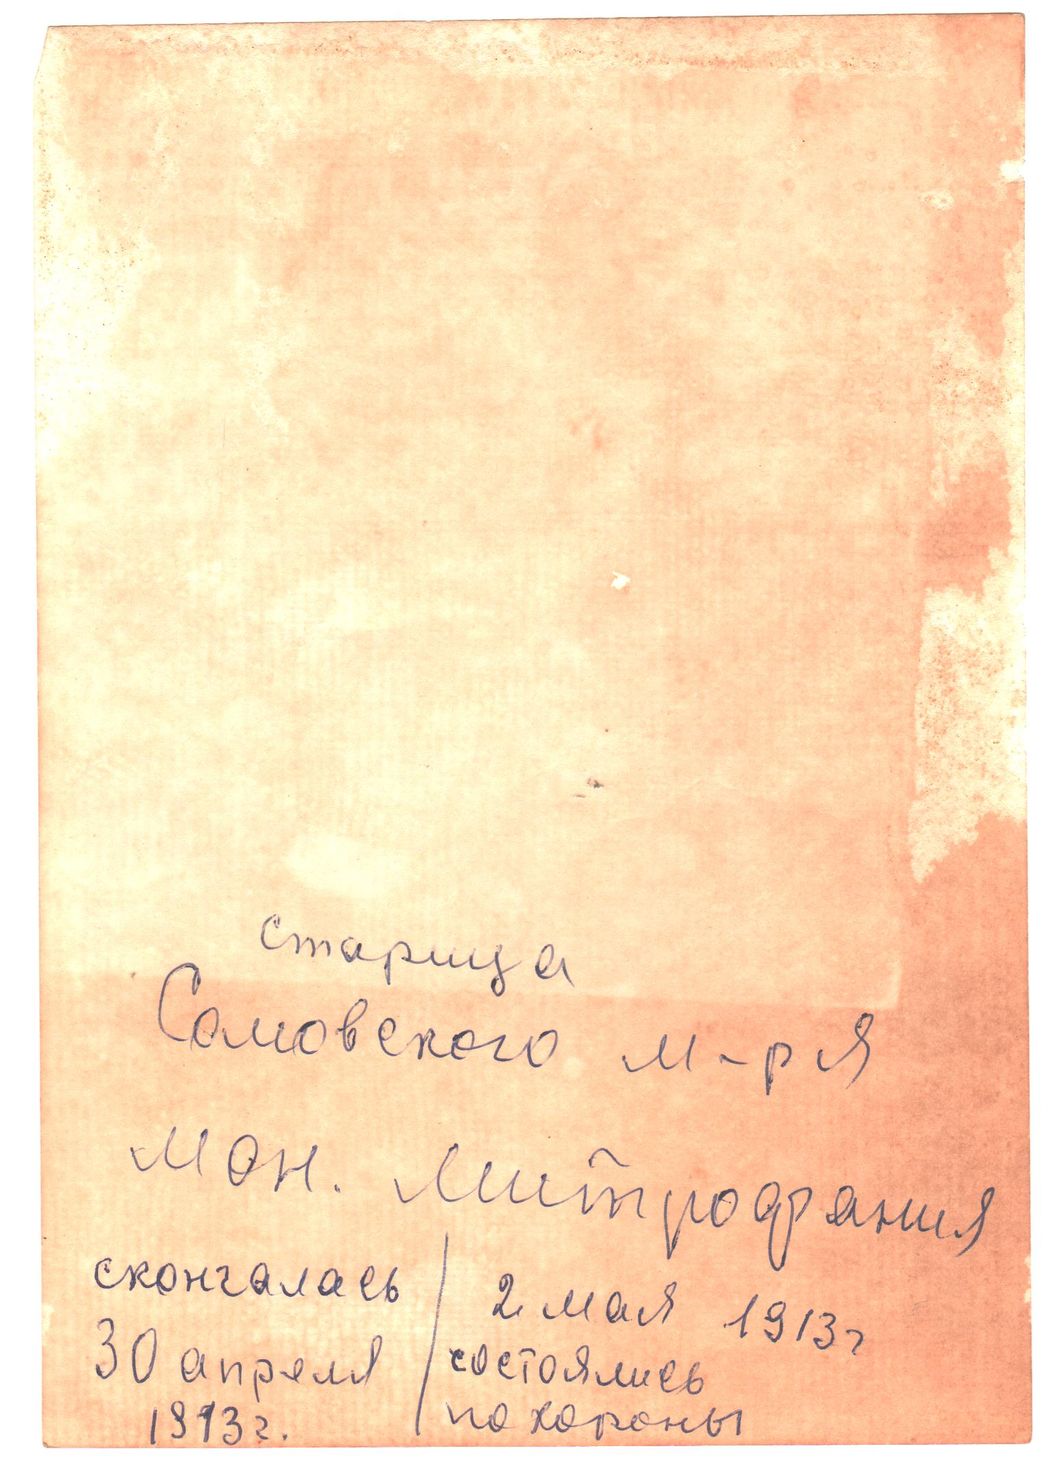 старица
Сомовского м-ря
мон. Митрофания
скончалась
30 апреля
1913г.
2 мая 1913г
состоялись
похороны